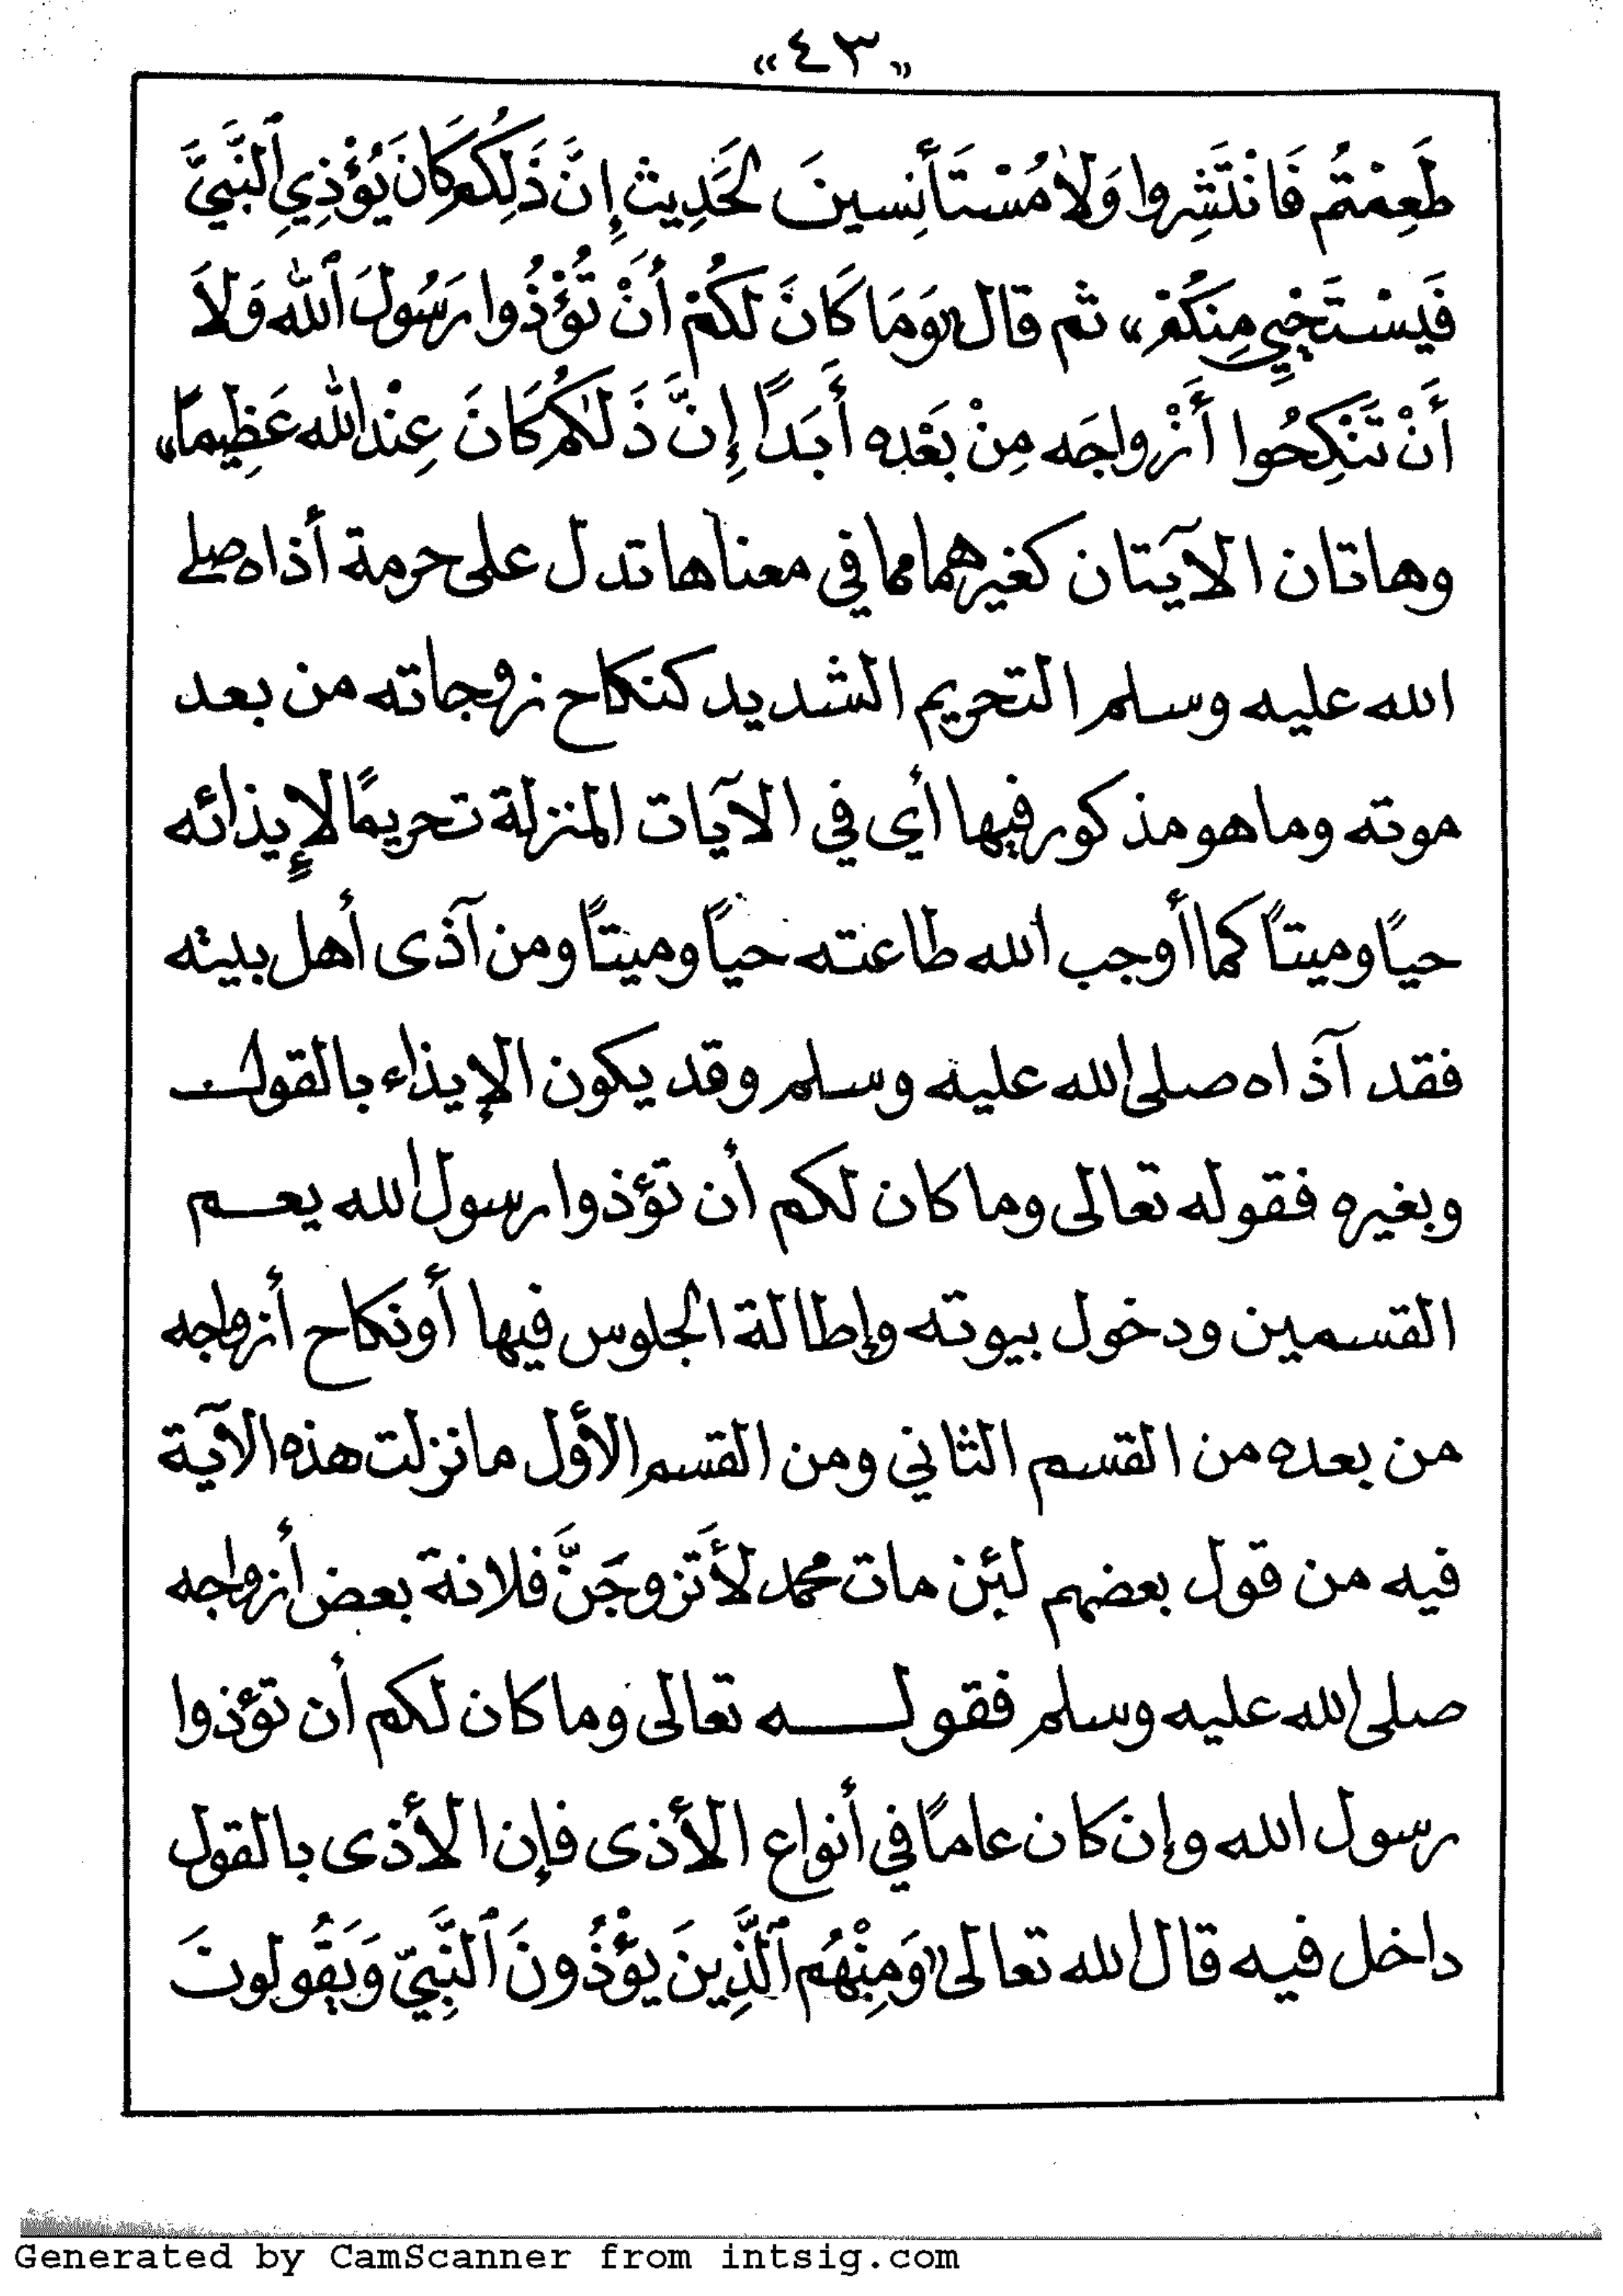 «٤٣»
طَعِمْتُم فَانْتَشِروا وَلاَ مُسْتَأنِسينَ لحَدِيث إِنَّ ذَلِكُم كَانَ يُؤْذِي ٱلنَّبِيَّ
فَيَسْتَحْيِي مِنكُمْ» ثم قال «وَمَا كَانَ لَكُمْ أَنْ تُؤْذُوا رَسُولَ ٱلله وَلاَ
أَنْ تَنْكِحُوا أَزْواجَه مِنْ بَعْدِه أَبَداً إِنَّ ذَلكُم كَانَ عِنْدَ الله عَظِيماً»
وهاتان الآيتان كغيرهما مما في معناها تدل على حرمة أذاه صلى
الله عليه وسلم التحريم الشديد كنكاح زوجاته من بعد
موته وما هو مذكور فيها أي في الآيات المنزلة تحريمًا لإيذائه
حيًا وميتاً كما أوجب الله طاعته حياً وميتاً ومن آذى أهل بيته
فقد آذاه صلى الله عليه وسلم وقد يكون الإيذاء بالقول
وبغيره فقوله تعالى وما كان لكم أن تؤذوا رسول الله يعم
القسمين ودخول بيوته وإطالة الجلوس فيها أونكاح أزواجه
من بعده من القسم الثاني ومن القسم الأول ما نزلت هذه الآية
فيه من قول بعضهم لئن مات محمد لأَتزوجَنَّ فلانة بعض أزواجه
صلى الله عليه وسلم فقوله تعالى وما كان لكم أن تؤذوا
رسول الله وإن كان عامًا في أنواع الأذى فإن الأذى بالقول
داخل فيه قال الله تعالى «وَمِنْهُم ٱلَّذِينَ يؤْذُونَ ٱلنَّبِيّ وَيَقُولونَ
Generated by CamScanner from intsig.com